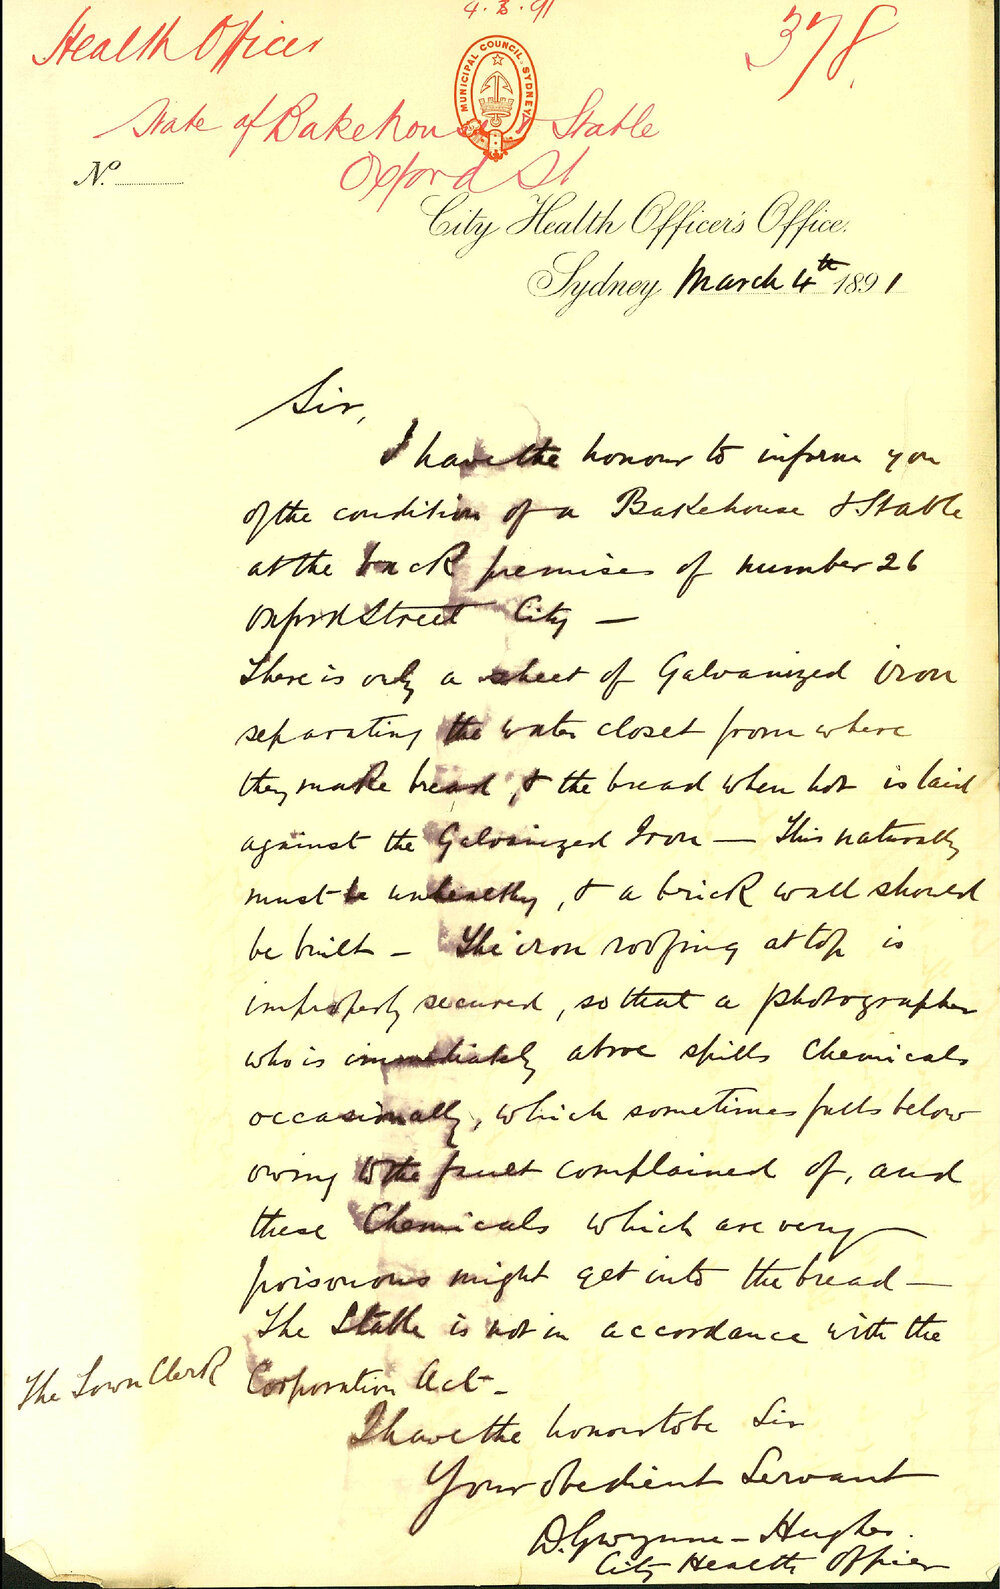 4.3.91
Health Officer
378
MUNICIPAL COUNCIL. SYDNEY
State of Bakehouse & Stable
Oxford St
No.
City Health Officer's Office.
Sydney March 4th 1891
Sir,
I have the honour to inform you
of the condition of a Bakehouse & Stable
at the back premises of number 26
Oxford Street City —
There is only a sheet of Galvanized iron
separating the water closet from where
they make bread, & the bread when hot is laid
against the Galvanized Iron — This naturally
must be unhealthy, & a brick wall should
be built — The iron roofing at top is
improperly secured, so that a photographer
who is immediately above spills Chemicals
occasionally, which sometimes falls below
owing to the fault complained of, and
these Chemicals which are very
poisonous might get into the bread —
The Stable is not in accordance with the
Corporation Act —
The Town Clerk
I have the honour to be Sir
Your obedient Servant
D. Gwynne-Hughes.
City Health Officer